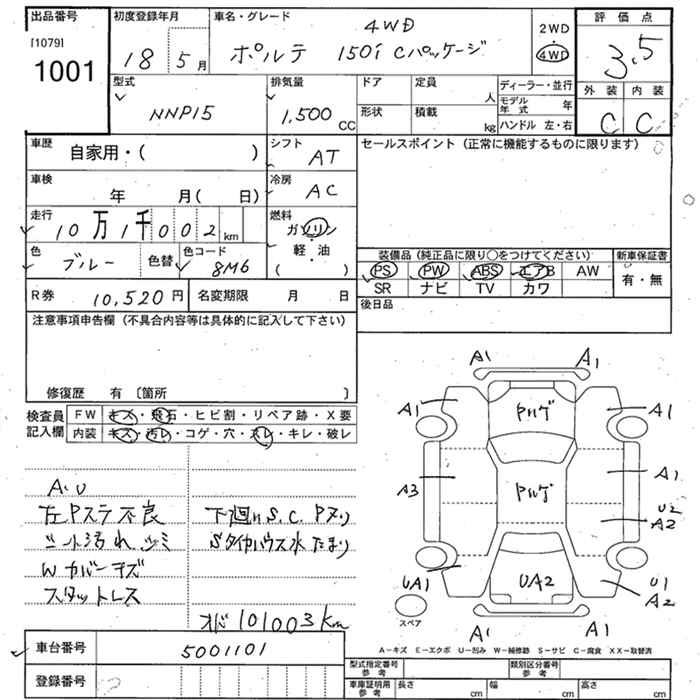 出品番号 初度登録年月 車名・グレード 評価点
[1079]
1001
18 5月
4WD
ポルテ 150i Cパッケージ
2WD
4WD
3.5
型式 排気量 ドア 定員 人 ディーラー・並行 外装 内装
NNP15
1,500 CC
形状 積載 kg
モデル年式 年
ハンドル 左・右
C C
車歴 自家用・( )
シフト AT
セールスポイント (正常に機能するものに限ります)
車検 年 月( 日)
冷房 AC
走行 10万1千002 km
燃料 ガソリン・軽油 ( )
色 ブルー 色替 色コード 8M6
装備品 (純正品に限り○をつけてください) 新車保証書
PS PW ABS エアB AW 有・無
SR ナビ TV カワ
R券 10,520円 名変期限 月 日
後日品
注意事項申告欄 (不具合内容等は具体的に記入して下さい)
修復歴 有 〔箇所 〕
検査員記入欄
FW キズ・飛石・ヒビ割・リペア跡・X要
内装 キズ・汚レ・コゲ・穴・スレ・キレ・破レ
A・U
左Pステ不良
シート汚れ シミ
W カバーキズ
スタットレス
下廻りS.C.Pヌリ
Sタイヤハウス水たまり
オド 101003km
A1 A1
A1 A1
Pハゲ
A3 A1
Pハゲ
U2
A2
UA1 UA2 U1
A2
スペア
A1 A1
A-キズ E-エクボ U-凹み W-補修跡 S-サビ C-腐食 XX-取替済
車台番号 5001101
登録番号
型式指定番号 参考 類別区分番号 参考
車庫証明用 参考 長さ cm 幅 cm 高さ cm